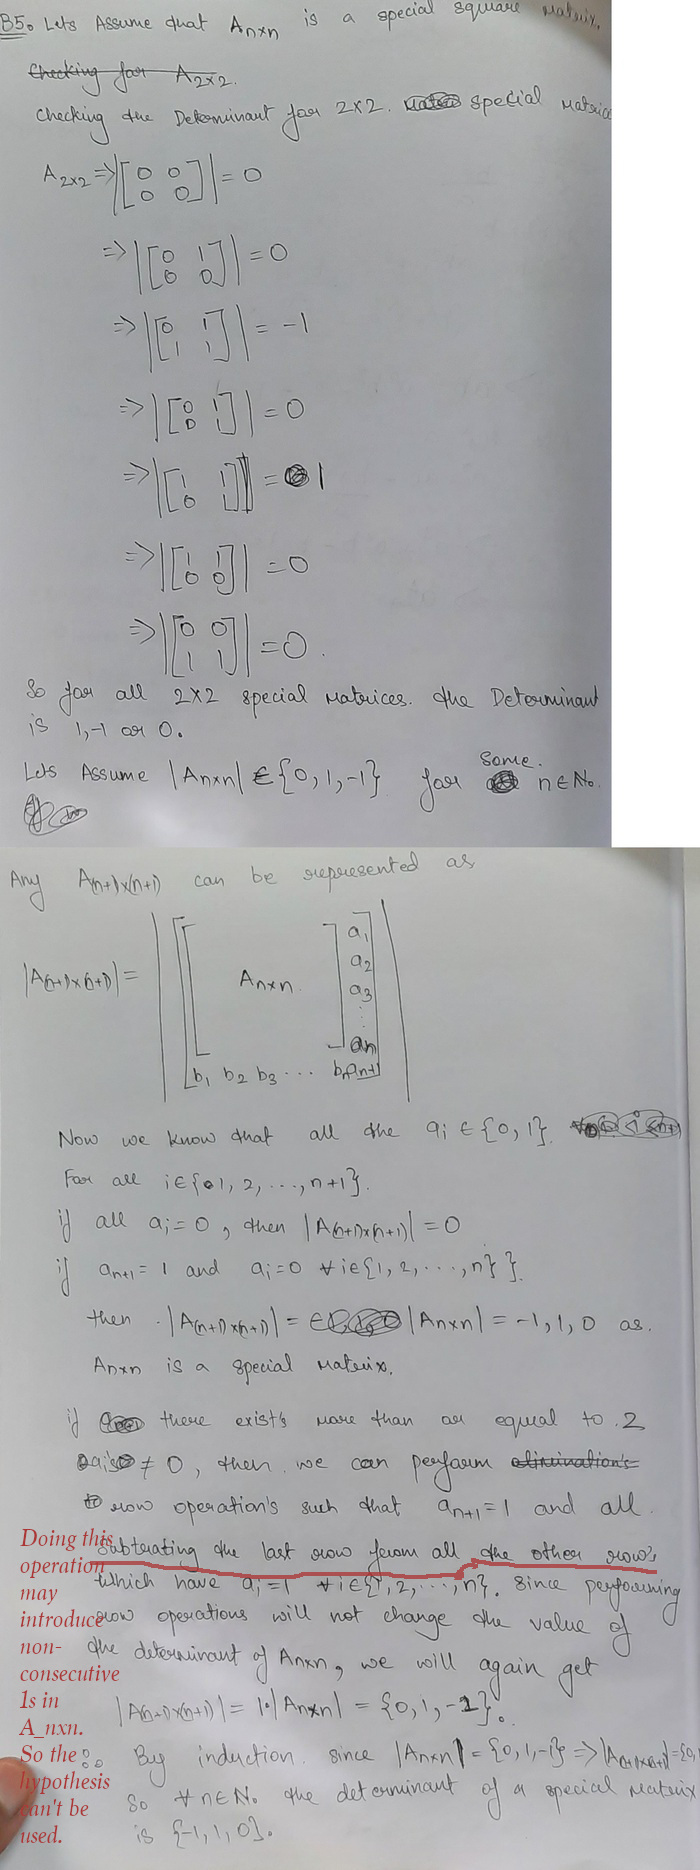 B5. Lets Assume that Anxn is a special square Matrix.
Checking for A2x2.
Checking the Determinant for 2x2. special Matrice
A2x2 => |[0 0 0 0]| = 0
=> |[0 1 0 0]| = 0
=> |[0 1 1 1]| = -1
=> |[0 1 0 1]| = 0
=> |[1 1 0 1]| = 1
=> |[1 1 0 0]| = 0
=> |[0 0 1 1]| = 0.
So for all 2x2 special Matrices. the Determinant
is 1,-1 or 0.
Lets Assume |Anxn| ∈ {0,1,-1} for some. n∈N.
Any A(n+1)x(n+1) can be represented as
|A(n+1)x(n+1)| =
Anxn
a1
a2
a3
an
b1 b2 b3 ... bn an+1
Now we know that all the ai ∈ {0,1}.
For all i∈{1,2,...,n+1}.
if all ai=0, then |A(n+1)x(n+1)| = 0
if an+1 = 1 and ai=0 ∀i∈{1,2,...,n}}.
then |A(n+1)x(n+1)| = |Anxn| = -1,1,0 as.
Anxn is a special Matrix.
if there exist's more than or equal to 2
ai's ≠ 0, then we can perform elimination's
row operation's such that an+1=1 and all.
subtrating the last row from all the other row's
which have ai=1 ∀i∈{1,2,...,n}. Since performing
row operations will not change the value of
the determinant of Anxn, we will again get
|A(n+1)x(n+1)| = 1.|Anxn| = {0,1,-1}.
Doing this
operation
may
introduce
non-
consecutive
1s in
A_nxn.
So the
hypothesis
can't be
used.
∴ By induction. since |Anxn| = {0,1,-1} => |A(n+1)x(n+1)|={0,
So ∀n∈N. the determinant of a special Matrix
is {-1,1,0}.